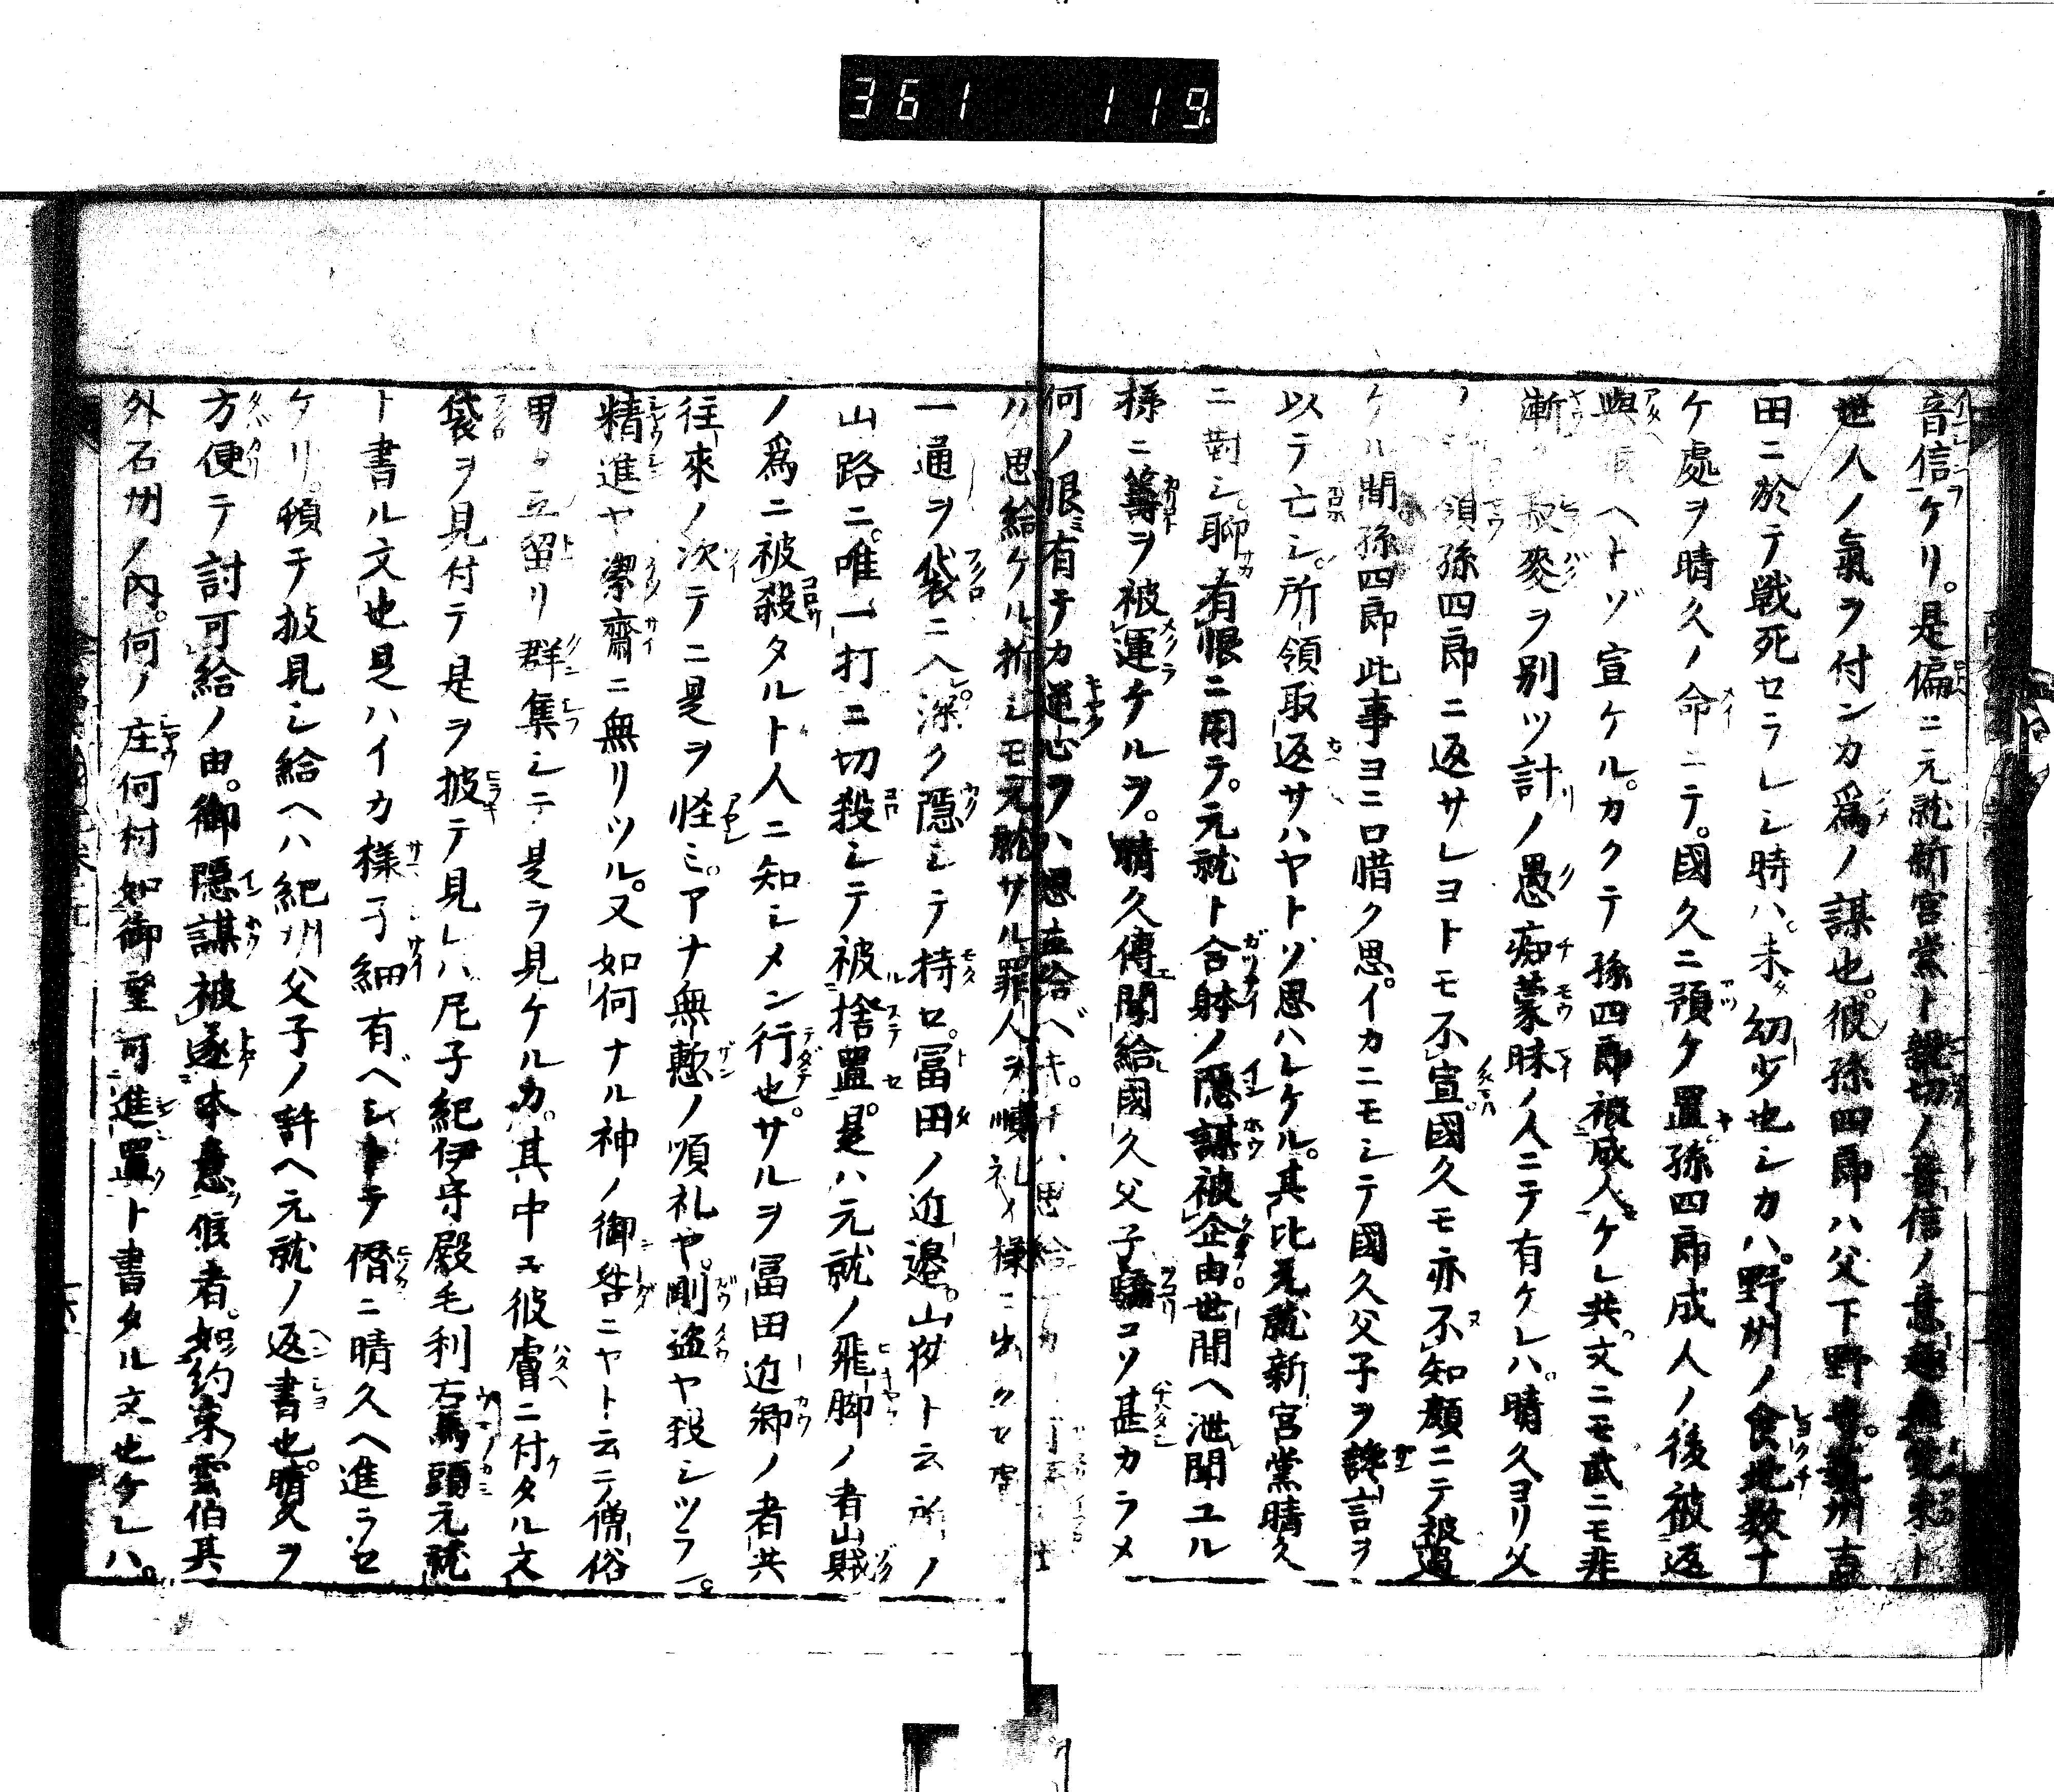 361 119
音信ケリ。是偏ニ元就新宮黨ト親切ノ音信ノ意趣無覺束ト
世人ノ氣ヲ付ンカ爲ノ謀也。彼孫四郎ハ父下野守。藝州吉
田ニ於テ戰死セラレシ時ハ。未タ幼少也シカハ。野州ノ食地数十
ケ處ヲ晴久ノ命ニテ。國久ニ預ケ置孫四郎成人ノ後被返
與 ヘトゾ宣ケル。カクテ孫四郎被成人ケレ共。文ニモ武ニモ非
漸 菽麥ヲ別ツ計ノ愚痴蒙昧ノ人ニテ有ケレハ。晴久ヨリ父
ノ 領孫四郎ニ返サレヨトモ不宣國久モ亦不知顏ニテ被過
ケル間孫四郎此事ヨニ口惜ク思。イカニモシテ國久父子ヲ讒言ヲ
以テ亡シ。所領取返サハヤトソ思ハレケル。其比元就新宮黨晴久
ニ對シ。聊有恨ニ用テ。元就ト合躰ノ隱謀被企由。世間ヘ泄聞ユル
様ニ籌ヲ被運ケルヲ。晴久傳聞給國久父子驕コソ甚カラメ
何ノ恨有テカ逆心ヲハ思立給ベキ。
ハ思給ケル折シモ元就サル罪人ヲ順礼ノ様ニ出
一通ヲ袋ニ入。深ク隱シテ持セ。冨田ノ近邉。山ト云所ノ
山路ニ。唯一打ニ切殺シテ被捨置。是ハ元就ノ飛脚ノ者山賊
ノ爲ニ被殺タルト人ニ知シメン行也。サルヲ冨田近郷ノ者共
往來ノ次テニ是ヲ怪ミ。アナ無慙ノ順礼ヤ。剛盗ヤ殺シツラン。
精進ヤ潔齋ニ無リツル。又如何ナル神ノ御咎ニヤト云テ僧俗
男女立留リ群集シテ是ヲ見ケルカ。其中ニ彼膚ニ付タル文
袋ヲ見付テ是ヲ披テ見レハ尼子紀伊守殿毛利右馬頭元就
ト書ル文也是ハイカ様子細有ベシトテ潛ニ晴久ヘ進ラセ
ケリ。頓テ披見シ給ヘハ紀州父子ノ許ヘ元就ノ返書也。晴久ヲ
方便テ討可給ノ由。御隱謀被遂本意候者。如約束雲伯其
外石州ノ内。何ノ庄何村如御望可進置ト書タル文也ケレハ。